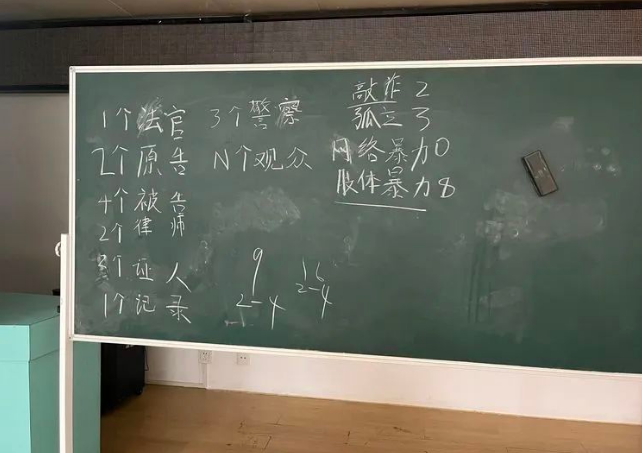 1个法官 3个警察
2个原告 N个观众
4个被告
2个律师
3个证人
1个记录
敲诈 2
孤立 3
网络暴力0
肢体暴力8
9
2-4
16
2-4